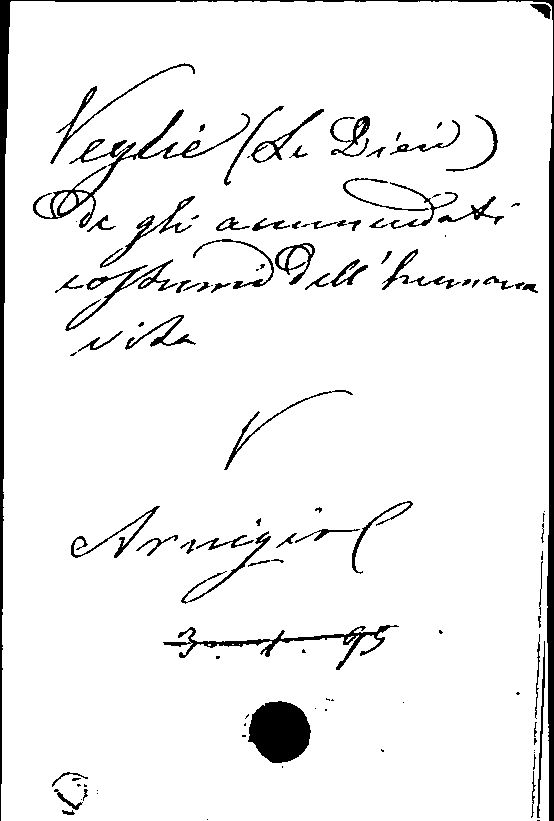 Veglie (Le Dieci)
De gli ammendati
costumi dell'humana
vita
V
Arnigio
3. 1. 95